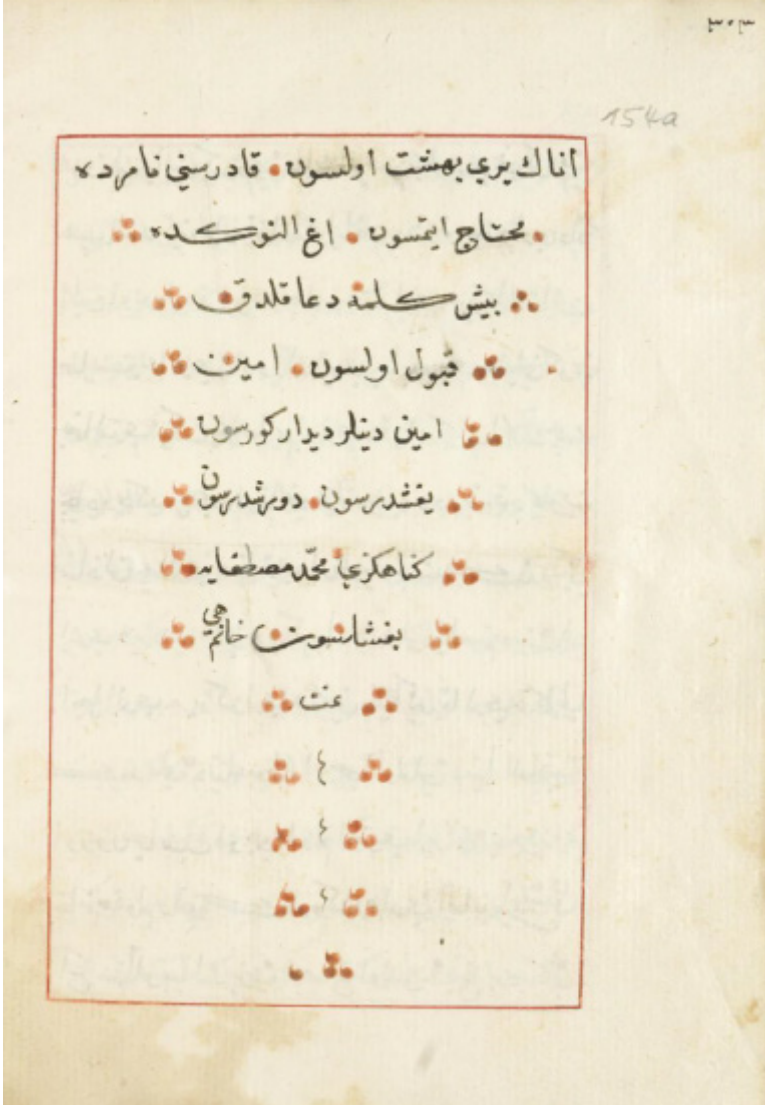 ٣٠٣
154a
اناك يري بهشت اولسون قادر سني نامرده
محتاج ايتمسون اغ النوكده
بيش كلمه دعا قلدق
قبول اولسون امين
امين دينلر ديدار كورسون
يغشدرسون دورشدرسون
كناهكزي محمد مصطفايه
بغشلسون خانم هي
تمت